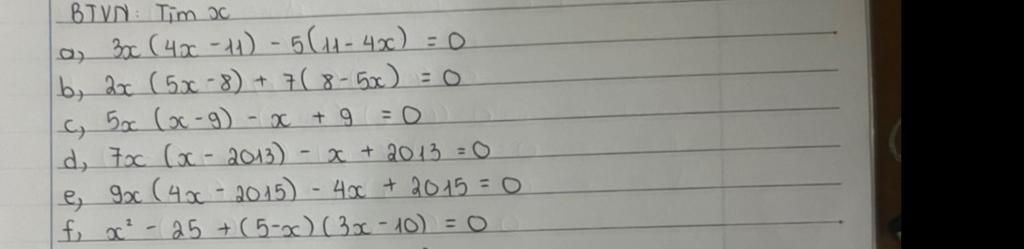 BTVN: Tìm x
a, 3x (4x - 11) - 5(11 - 4x) = 0
b, 2x (5x - 8) + 7( 8 - 5x) = 0
c, 5x (x - 9) - x + 9 = 0
d, 7x (x - 2013) - x + 2013 = 0
e, 9x (4x - 2015) - 4x + 2015 = 0
f, x² - 25 + (5-x) (3x - 10) = 0